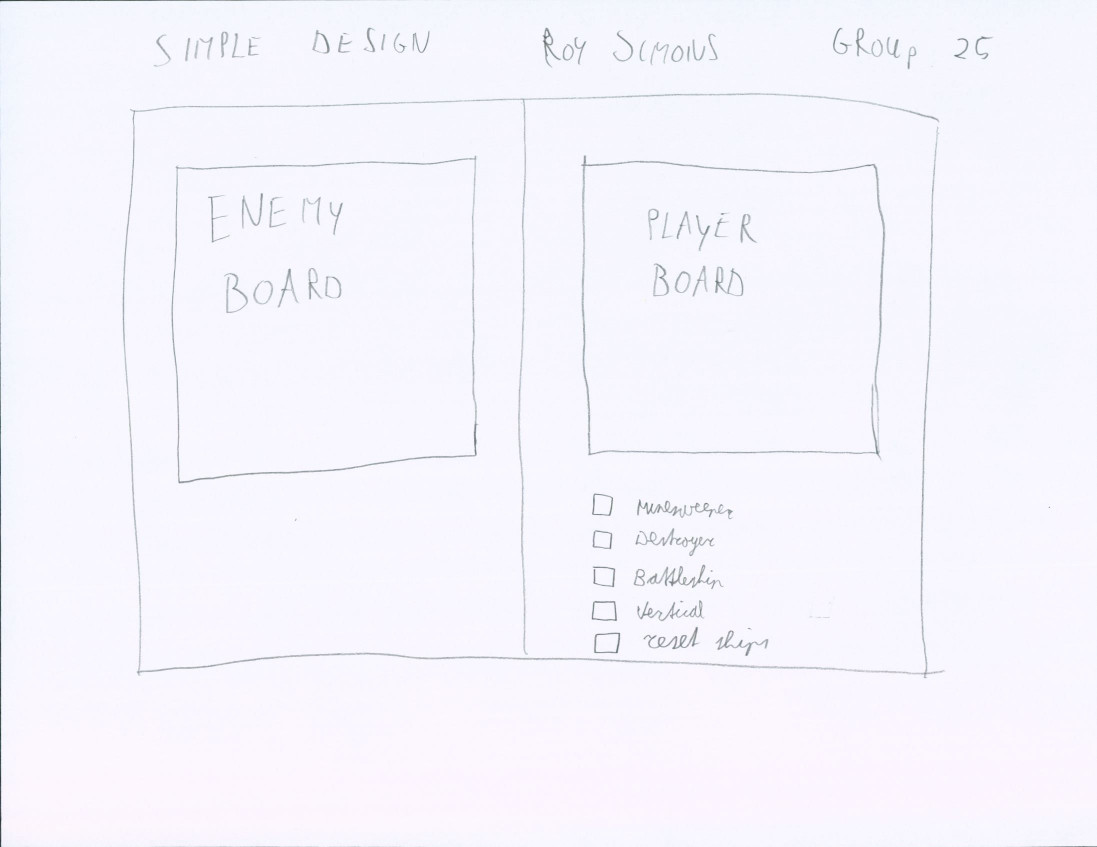 SIMPLE DESIGN ROY SIMONS GROUP 25
ENEMY
BOARD
PLAYER
BOARD
Minesweeper
Destroyer
Battleship
Vertical
reset ships